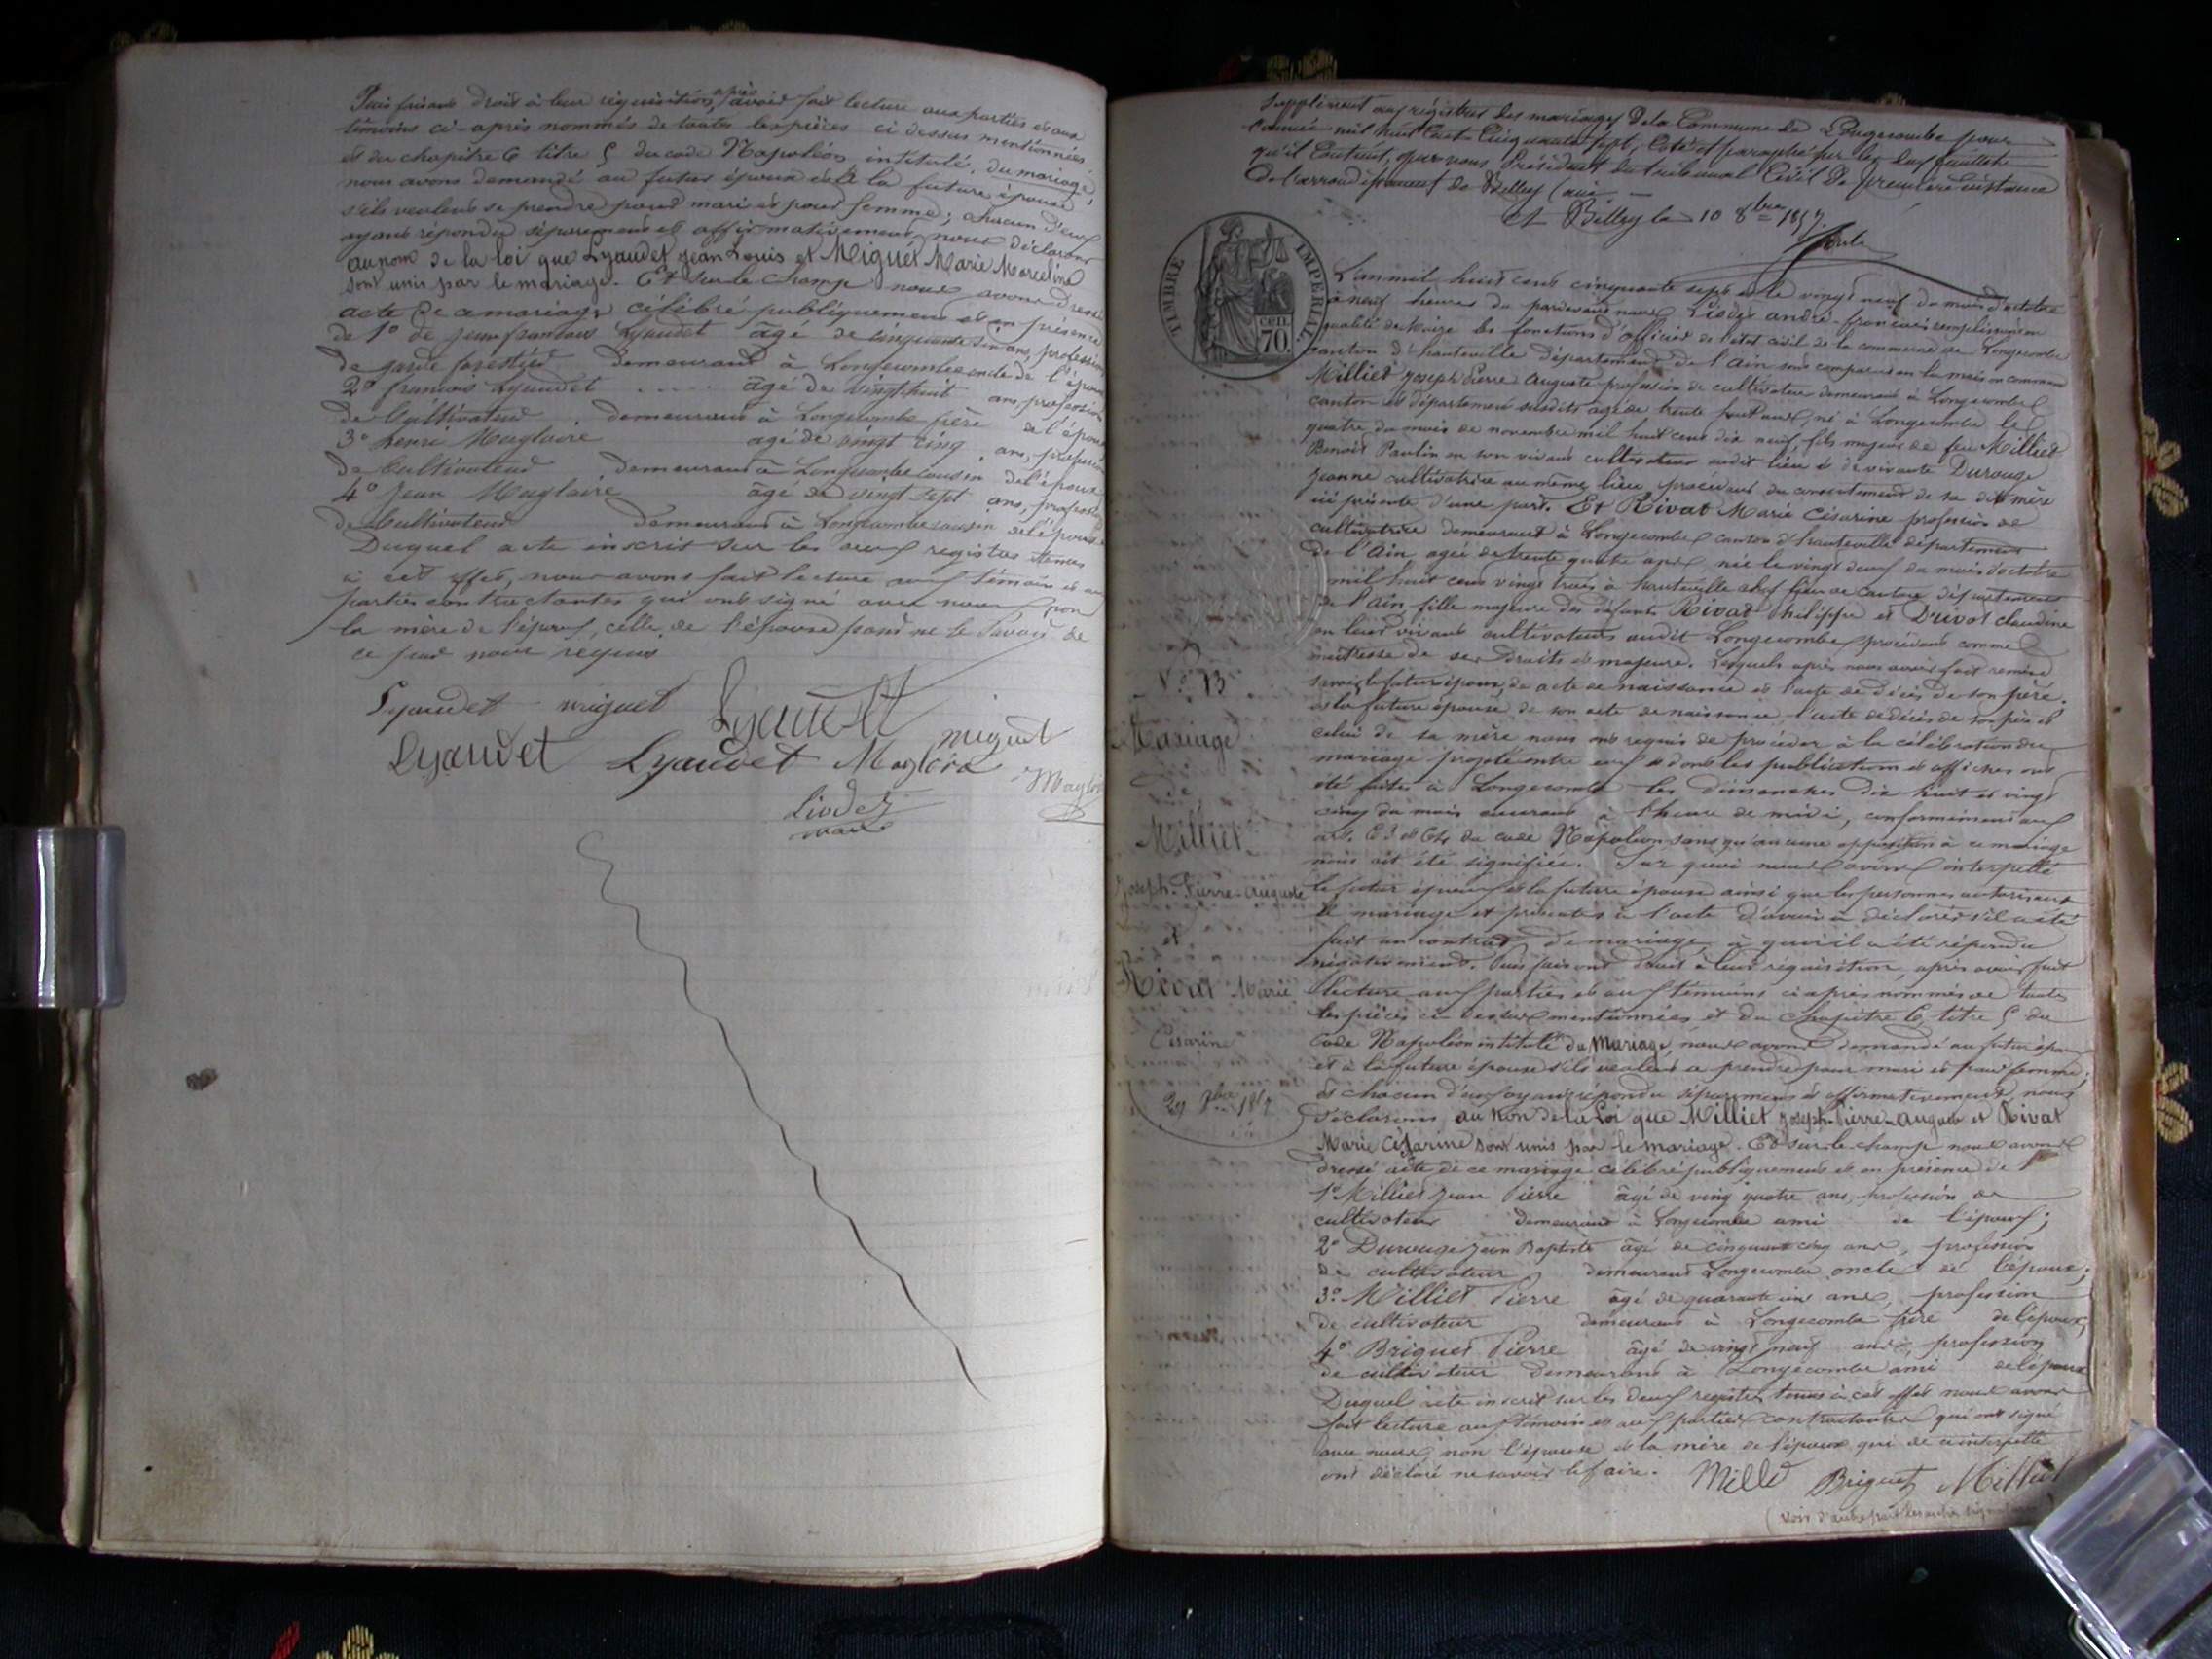 Puis faisant droit à leur réquisition, après avoir fait lecture aux parties et aux
témoins ci-après nommés de toutes les pièces ci dessus mentionnées
et du chapitre 6 titre 5 du code Napoléon intitulé, du mariage,
nous avons demandé au futur époux et à la future épouse
s'ils veulent se prendre pour mari et pour femme; chacun d'eux
ayant répondu séparément et affirmativement nous déclarons
au nom de la loi que Lyaudet Jean Louis et Miguet Marie Marceline
sont unis par le mariage. Et sur le champ nous avons dressé
acte de ce mariage célébré publiquement et en présence
de 1º de Jean françois Lyaudet âgé de cinquante six ans, profession
de garde forestier demeurant à Longecombe oncle de l'époux
2º françois Lyaudet âgé de vingt huit ans, profession
de Cultivateur demeurant à Longecombe frère de l'époux
3º henri Magloire âgé de vingt cinq ans, profession
de Cultivateur demeurant à Longecombe cousin de l'époux
4º Jean Magloire âgé de vingt sept ans, profession
de Cultivateur demeurant à Longecombe cousin de l'épouse
Duquel acte inscrit sur les deux registres tenus
à cet effet, nous avons fait lecture aux témoins et aux
parties contractantes qui ont signé avec nous, non
la mère de l'époux, celle de l'épouse pour ne le savoir de
ce par nous requis
Lyaudet miguet Lyaudet miguet
Lyaudet Lyaudet Magloire Magloire
Liodez
maire
Supplément aux régistres des mariages De la Commune de Longecombe pour
l'année mil huit Cent Cinquante sept, Coté et paraphé sur les deux feuillets
qu'il Contient, par nous Président du tribunal Civil De première instance
De l'arrondissement de Belley (ain)
A Belley le 10 8bre 1857.
TIMBRE IMPERIAL
CEN. 70.
L'an mil huit cent cinquante sept et le vingt neuf du mois d'octobre
à neuf heures du pardevant nous Liodez andré-françois remplissant en
qualité de Maire les fonctions d'officier de l'état civil de la commune de Longecombe
canton d'hauteville département de l'Ain sont comparus en la maison commune
Milliet Joseph Pierre Auguste profession de cultivateur demeurant à Longecombe
canton et département susdits âgé de trente huit ans, né à Longecombe le
quatre du mois de novembre mil huit cent dix neuf, fils majeur de feu Milliet
Benoit Paulin en son vivant cultivateur audit lieu et de vivante Durouge
Jeanne cultivatrice au même lieu procédant du consentement de sa dite mère
ici présente d'une part. Et Rivat Marie Césarine profession de
cultivatrice demeurant à Longecombe canton d'hauteville département
de l'Ain âgée de trente quatre ans, née le vingt deux du mois d'octobre
mil huit cent vingt trois à hauteville chef lieu de canton département
de l'Ain fille majeure des défunts Rivat Philippe et Drivot claudine
en leur vivant cultivateurs audit Longecombe procédant comme
maitresse de ses droits et majeure. Lesquels après nous avoir fait remise
savoir, le futur époux, de acte de naissance et l'acte de décès de son père.
et la future épouse de son acte de naissance l'acte de décès de son père et
celui de sa mère nous ont requis de procéder à la célébration du
mariage projeté entre eux et dont les publications et affiches ont
été faites à Longecombe les dimanches dix huit et vingt
cinq du mois courant à l'heure de midi, conformément aux
art. 63 et 64 du code Napoléon sans qu'aucune opposition à ce mariage
nous ait été signifiée. Sur quoi nous avons interpellé
le futur époux et la future épouse ainsi que les personnes autorisant
le mariage et présentes à l'acte d'avoir à déclarer s'il a été
fait un contrat de mariage à quoi il a été répondu
négativement. Puis faisant droit à leur réquisition, après avoir fait
lecture aux parties et aux témoins ci après nommés de toutes
les pièces ci dessus mentionnées et du chapitre 6, titre 5 du
Code Napoléon intitulé du Mariage, nous avons demandé au futur époux
et à la future épouse s'ils veulent se prendre pour mari et pour femme;
et chacun d'eux ayant répondu séparément et affirmativement, nous
déclarons au Nom de la Loi que Milliet Joseph-Pierre-Auguste et Rivat
Marie Césarine sont unis par le mariage. Et sur le champ nous avons
dressé acte de ce mariage célébré publiquement et en présence de
1º Milliet Jean Pierre âgé de vingt quatre ans, profession de
cultivateur demeurant à Longecombe ami de l'époux;
2º Durouge Jean Baptiste âgé de cinquante cinq ans, profession
de cultivateur demeurant Longecombe oncle de l'époux;
3º Milliet Pierre âgé de quarante un ans, profession
de cultivateur demeurant à Longecombe frère de l'époux;
4º Briguet Pierre âgé de vingt neuf ans, profession
de cultivateur demeurant à Longecombe ami de l'époux
Duquel acte inscrit sur les deux registres tenus à cet effet nous avons
fait lecture aux témoins et aux parties contractantes qui ont signé
avec nous non l'épouse et la mère de l'époux qui de ce interpellé
ont déclaré ne savoir le faire. Millet Briguet Milliet
(Voir d'autre part les autres signatures)
Nº 13
Mariage
de
Milliet
Joseph-Pierre-Auguste
et
Rivat Marie
Césarine
29 8bre 1857